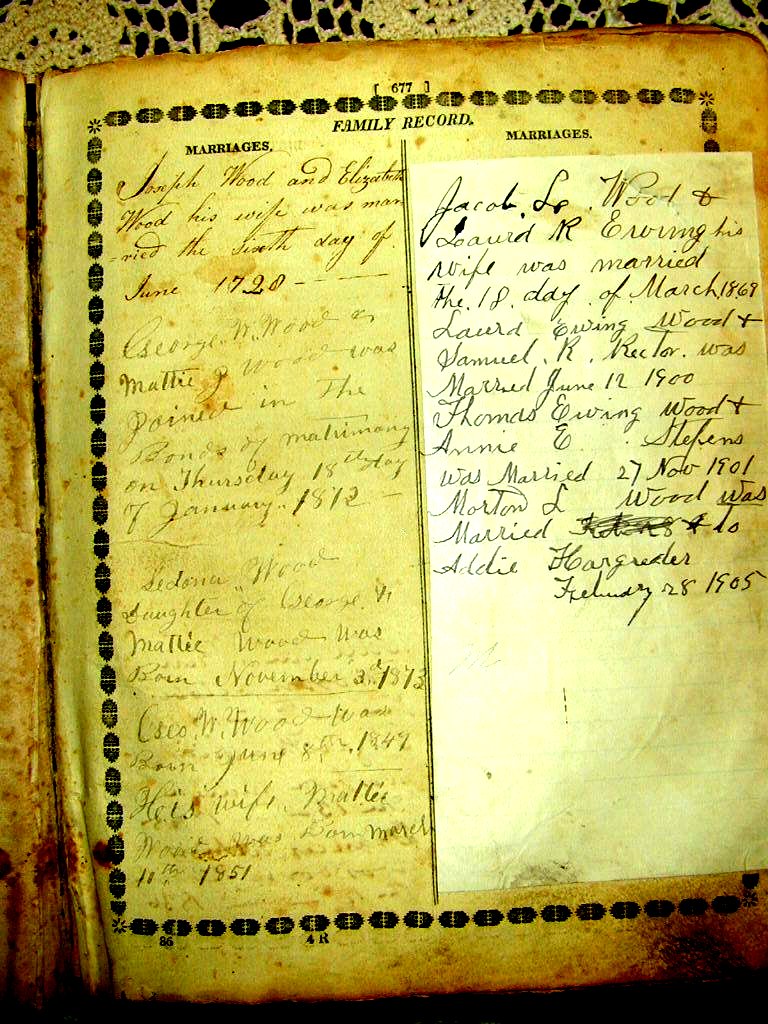 [ 677 ]
FAMILY RECORD.
MARRIAGES.
Joseph Wood and Elizabeth
Wood his wife was mar
-ried the sixth day of
June 1728
George. W. Wood &
Mattie J Wood was
joined in the
Bonds of matrimony
on Thursday 18th day
of January. 1872
Ledona Wood
Daughter of George &
Mattie Wood Was
Born November 3rd 1873
Geo. W. Wood Was
Born June 8th 1847
His wife Mattie
Wood was Born march
11th 1851
MARRIAGES.
Jacob. L. Wood &
Laura R Erwing his
wife was married
the. 18. day of March, 1869
Laura Ewing Wood &
Samuel. R. Rector. was
Married June 12 1900
Thomas Ewing Wood &
Annie E. Stefens
was Married 27 Nov 1901
Morton L Wood was
Married & to
Addie Hargrader
February 28 1905
86
4 R